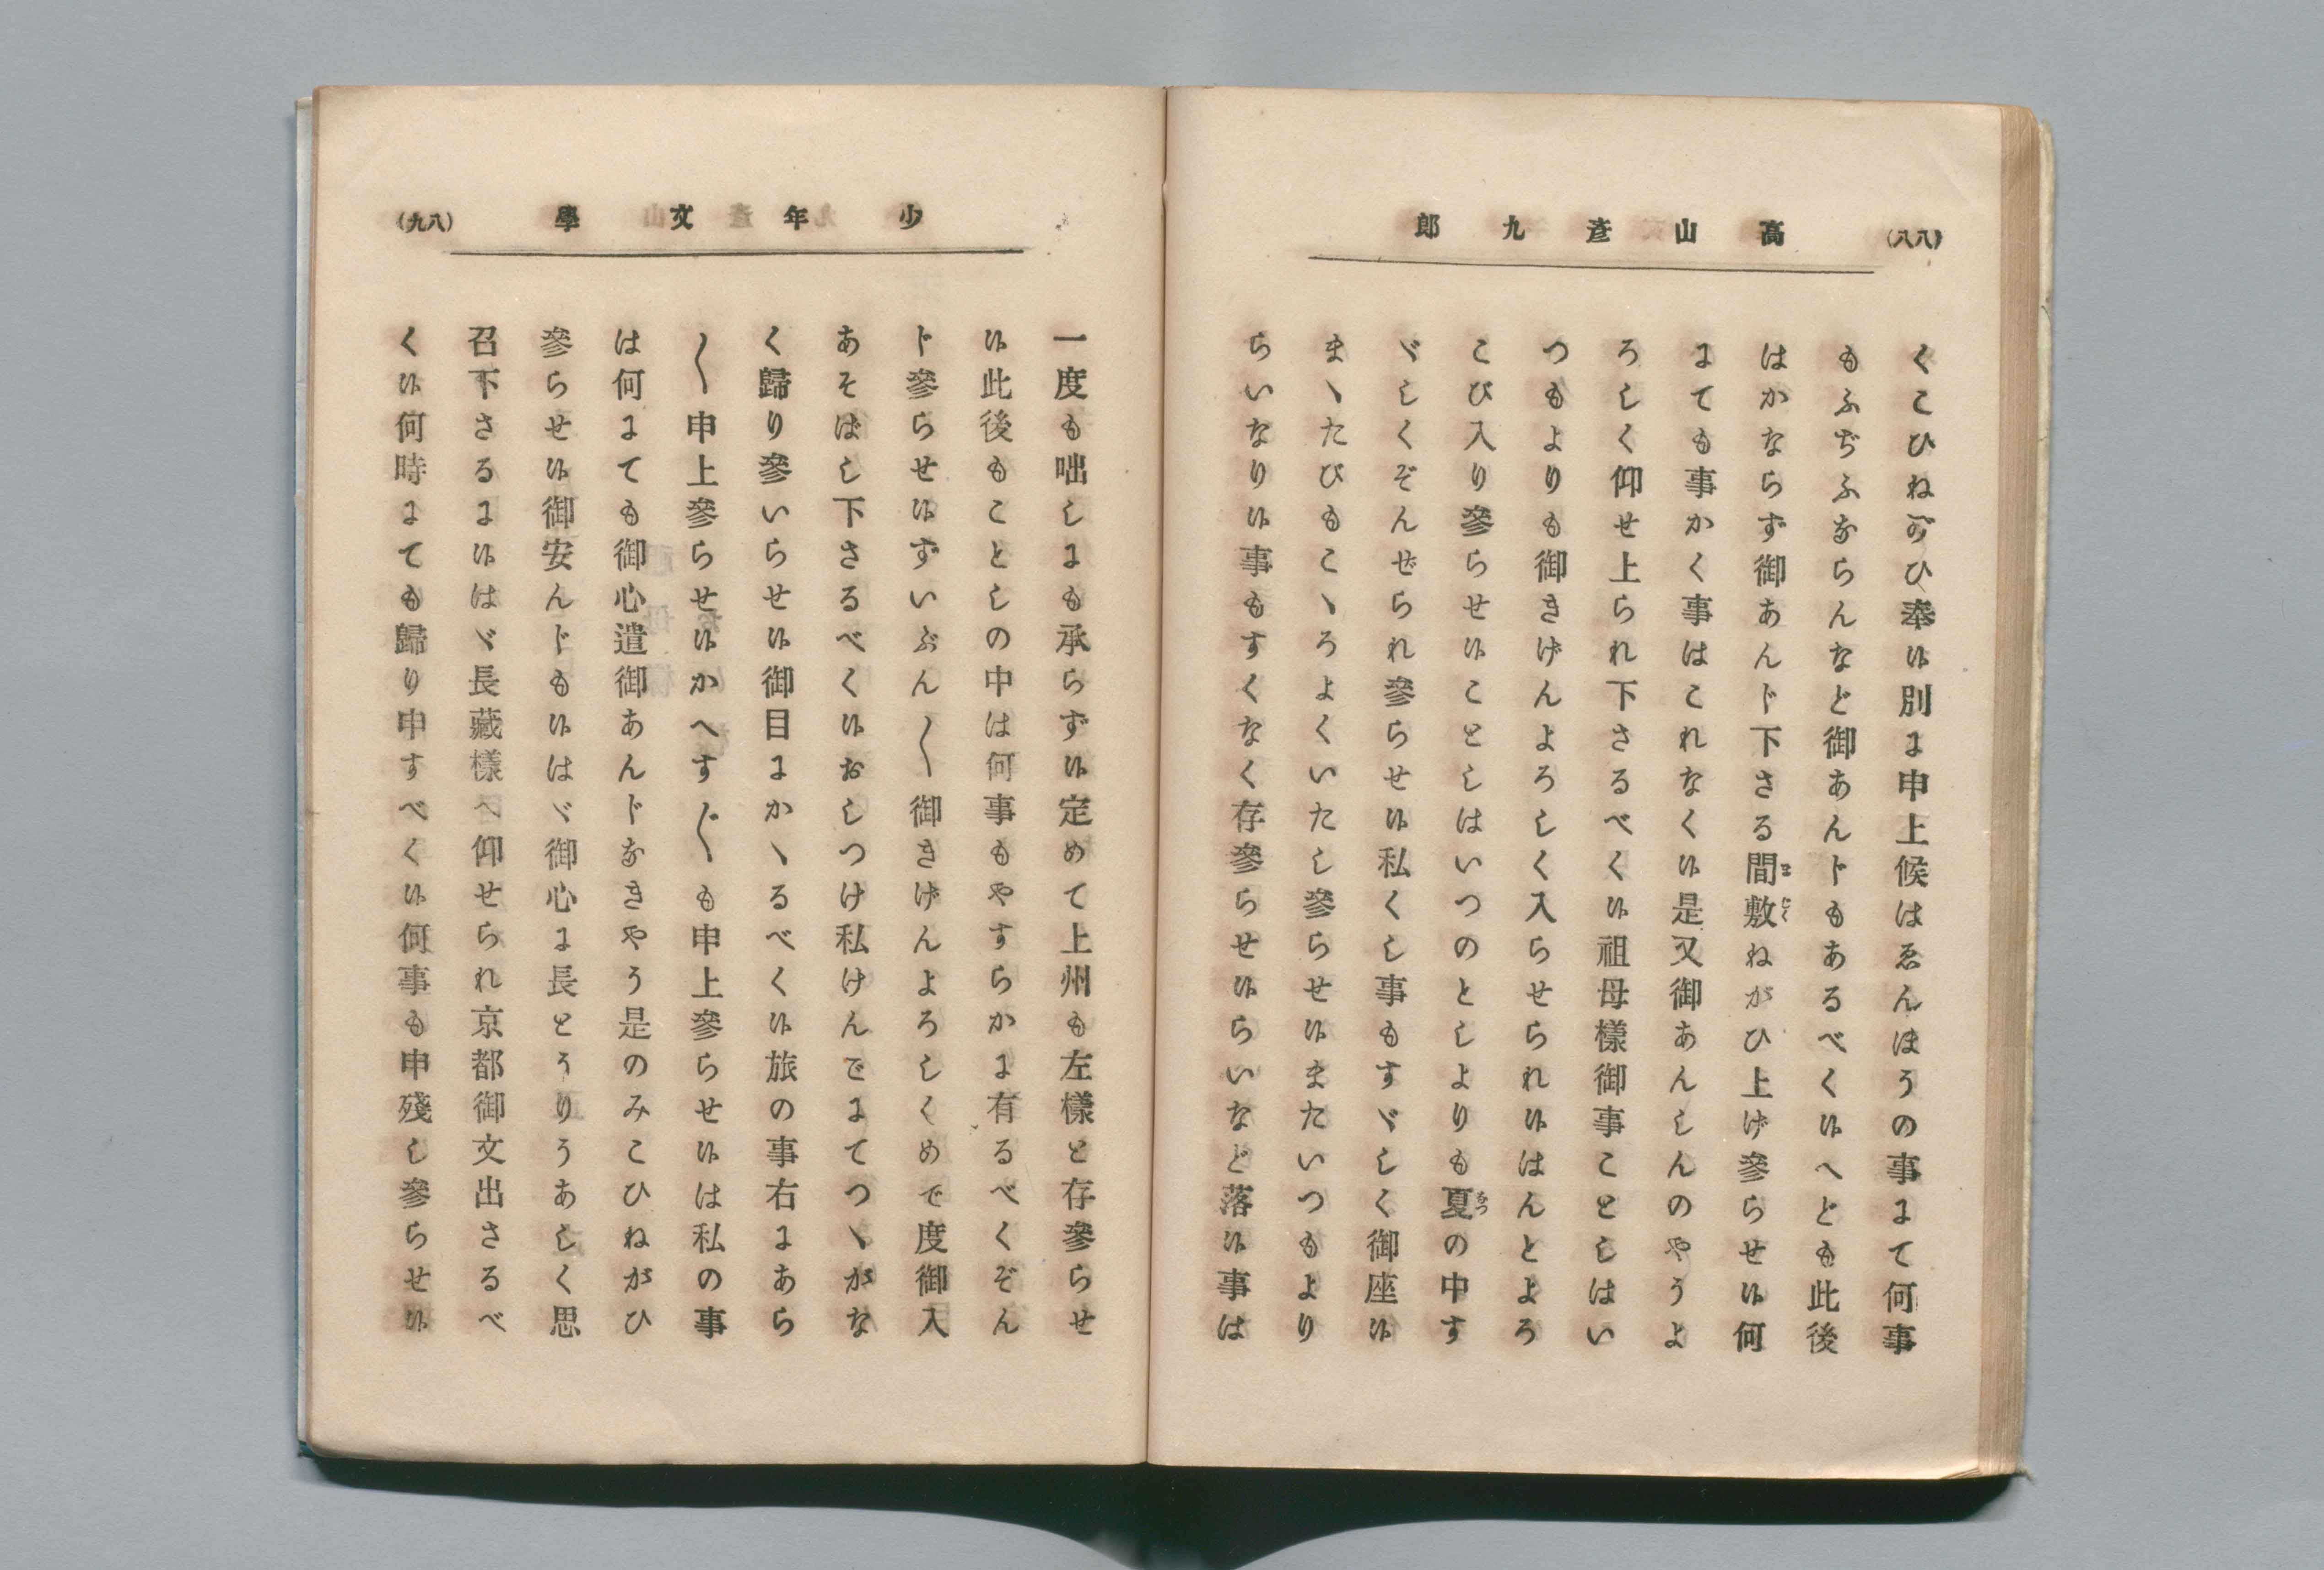 (八八)
高山彦九郎
くこひねがひ奉い別にて申上候はゑんはうの事にて何事
もふぢふをらんなど御あんドもあるべくいへども此後
はかならず御あんド下さる間敷ねがひ上げ參らせい何
にても事かく事はこれなくい是又御あんしんのやうよ
ろしく仰せ上られ下さるべくい祖母樣御事ことしはい
つもよりも御きげんよろしく入らせられいはんとよろ
こび入り參らせいことしはいつのとしよりも夏の中す
ゞしくぞんぜられ參らせい私くし事もすゞしく御座い
まゝたびもこゝろよくいたし參らせいまたいつもより
らいなりい事もすくなく存參らせいらいなど落い事は
少年文學
(八九)
一度も咄しにも承らずい定めて上州も左樣と存參らせ
い此後もことしの中は何事もやすらかに有るべくぞん
ド參らせいずいぶん〳〵御きげんよろしくめで度御入
あそばし下さるべくいおしつけ私けんでにてつゝがな
く歸り參いらせい御目にかゝるべくい旅の事右にあら
〳〵申上參らせいかへす〴〵も申上參らせいは私の事
は何にても御心遣御あんドをきやう是のみこひねがひ
參らせい御安んドもいはゞ御心に長とうりうあしく思
召下さるにいはゞ長藏樣へ仰せられ京都御文出さるべ
くい何時にても歸り申すべくい何事も申殘し參らせい